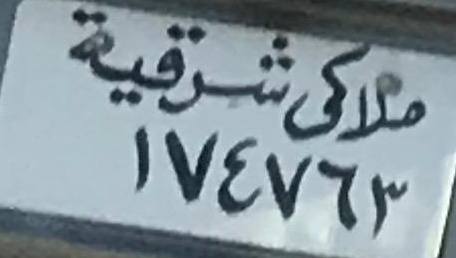 ملاكى شرقية
١٧٤٧٦٣